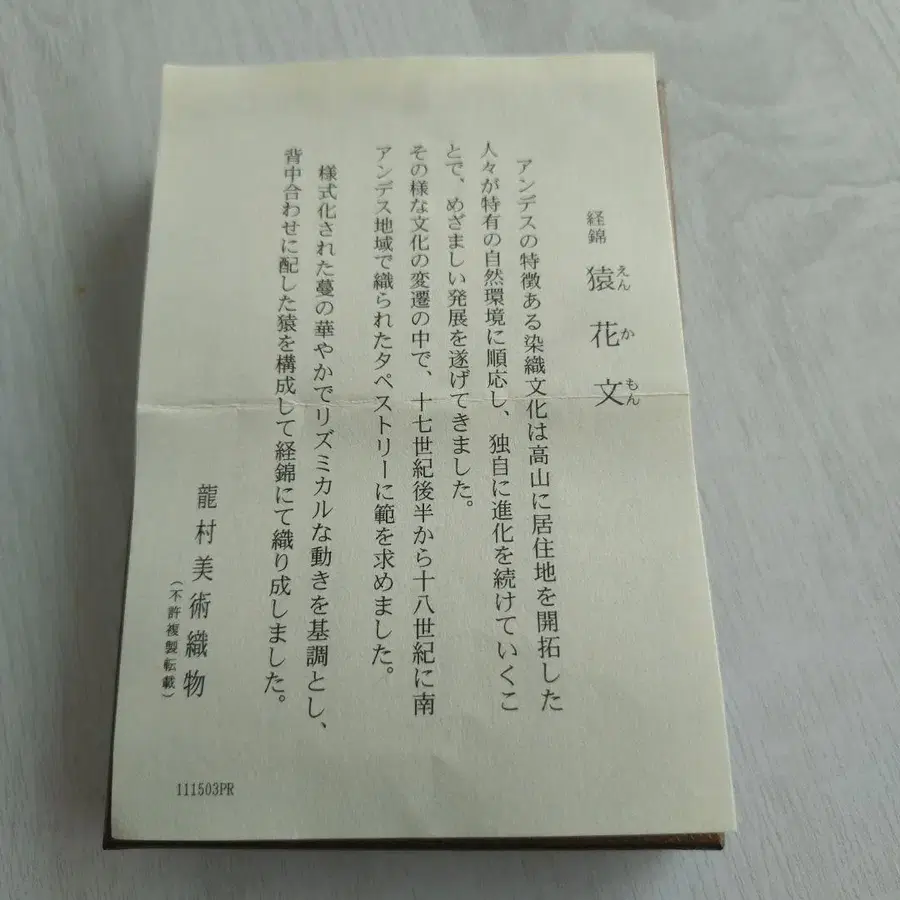 経錦 猿花文
えんかもん
アンデスの特徴ある染織文化は高山に居住地を開拓した
人々が特有の自然環境に順応し、独自に進化を続けていくこ
とで、めざましい発展を遂げてきました。
その様な文化の変遷の中で、十七世紀後半から十八世紀に南
アンデス地域で織られたタペストリーに範を求めました。
様式化された蔓の華やかでリズミカルな動きを基調とし、
背中合わせに配した猿を構成して経錦にて織り成しました。
龍村美術織物
（不許複製転載）
111503PR